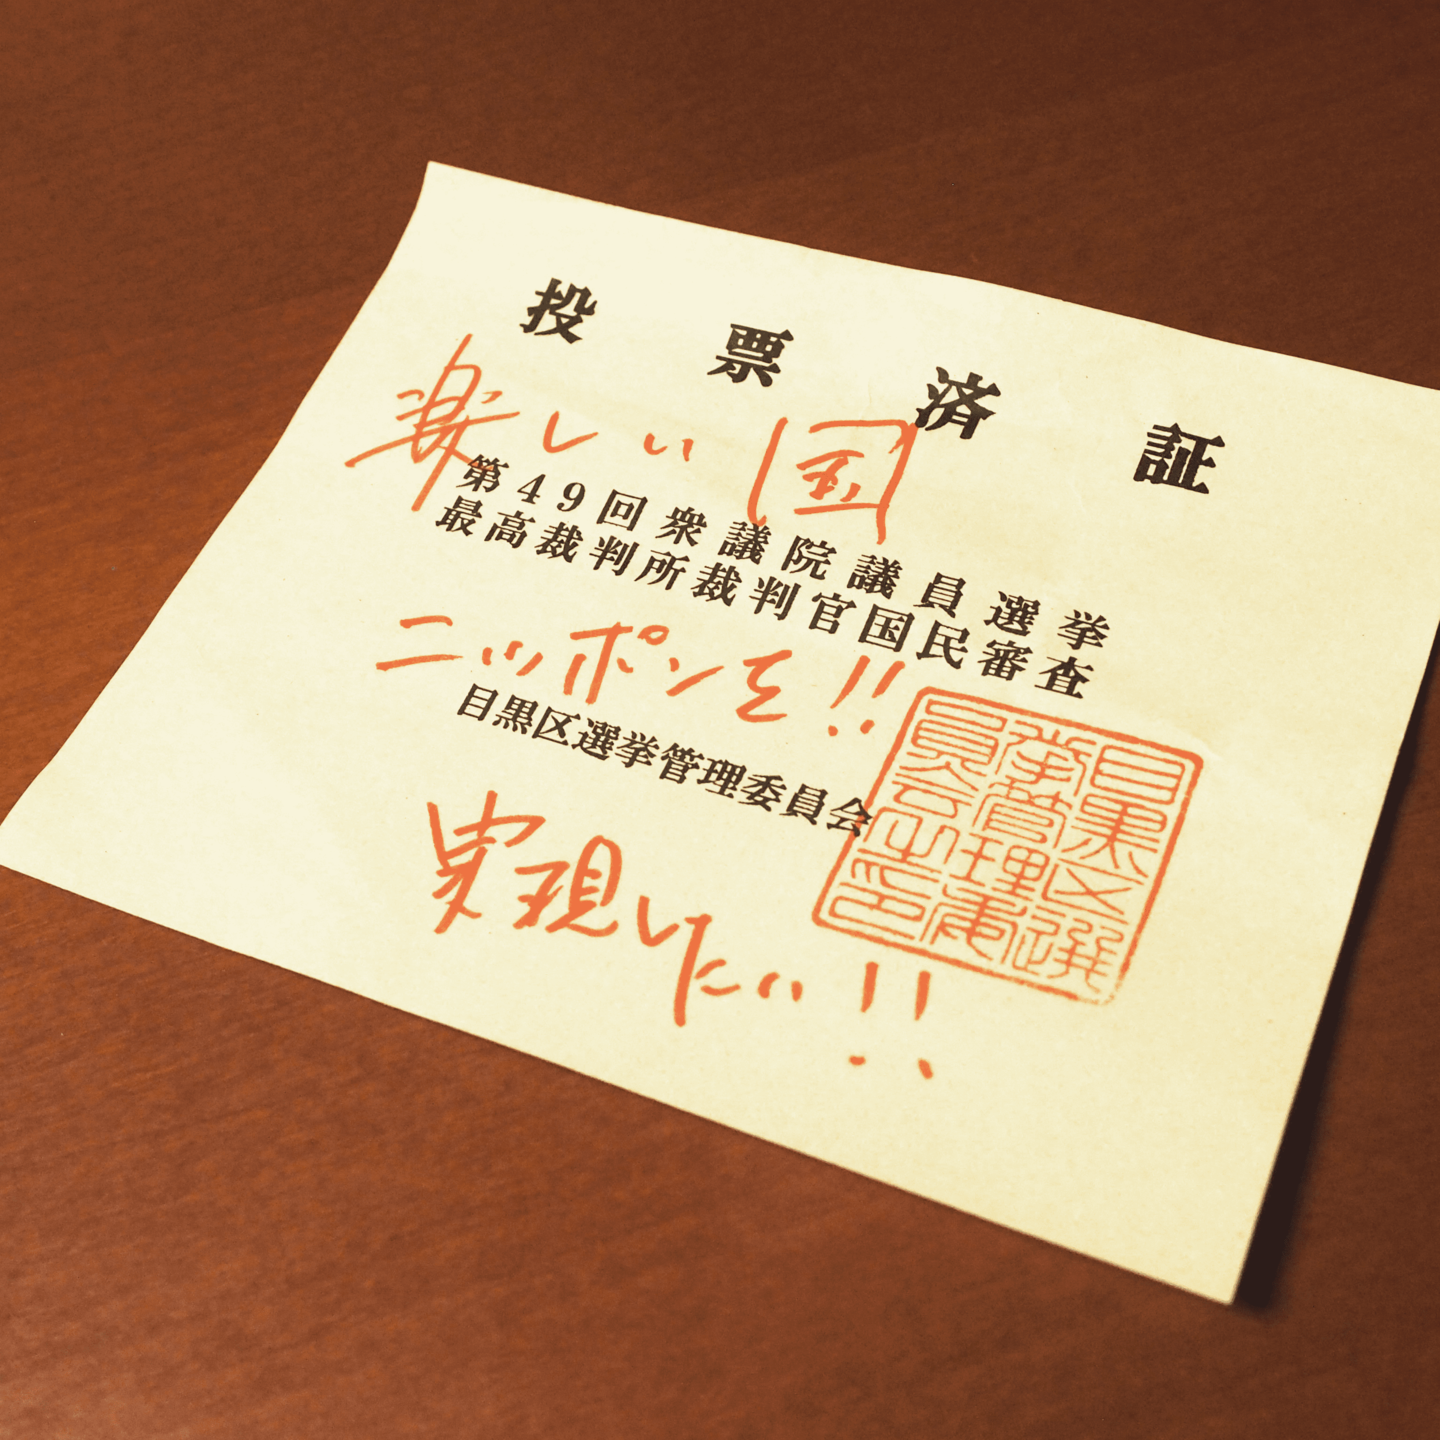 投票済証
楽しい国
第49回衆議院議員選挙
最高裁判所裁判官国民審査
ニッポンを!!
目黒区選挙管理委員会
目黒区選
挙管理委
員会之印
実現したい!!